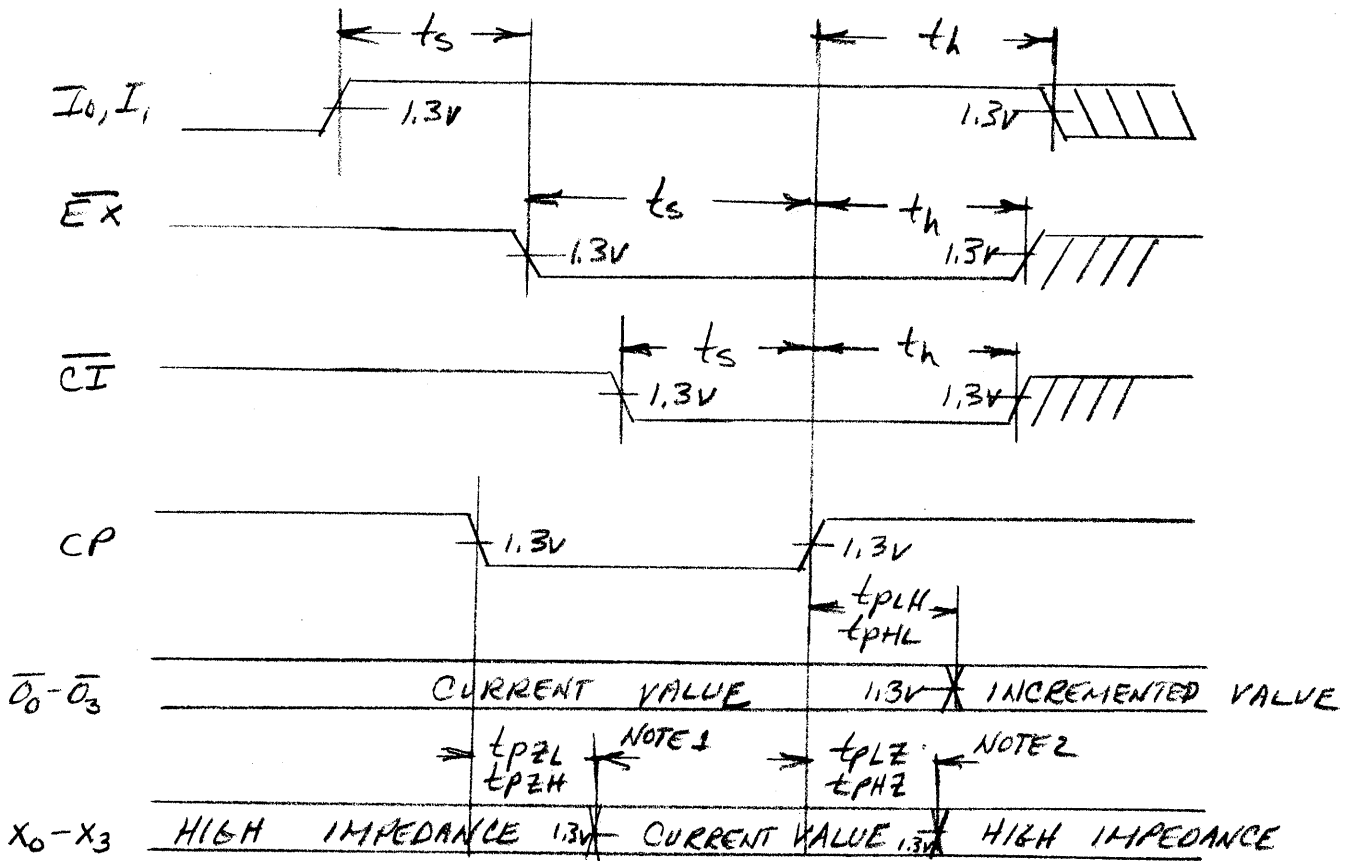 ts th
I0, I1 1.3V 1.3V
E̅X̅ ts th
1.3V 1.3V
C̅I̅ ts th
1.3V 1.3V
CP 1.3V 1.3V
tPLH
tPHL
O̅0-O̅3 CURRENT VALUE 1.3V INCREMENTED VALUE
tPZL NOTE 1 tPLZ NOTE 2
tPZH tPHZ
X0-X3 HIGH IMPEDANCE 1.3V CURRENT VALUE 1.3V HIGH IMPEDANCE